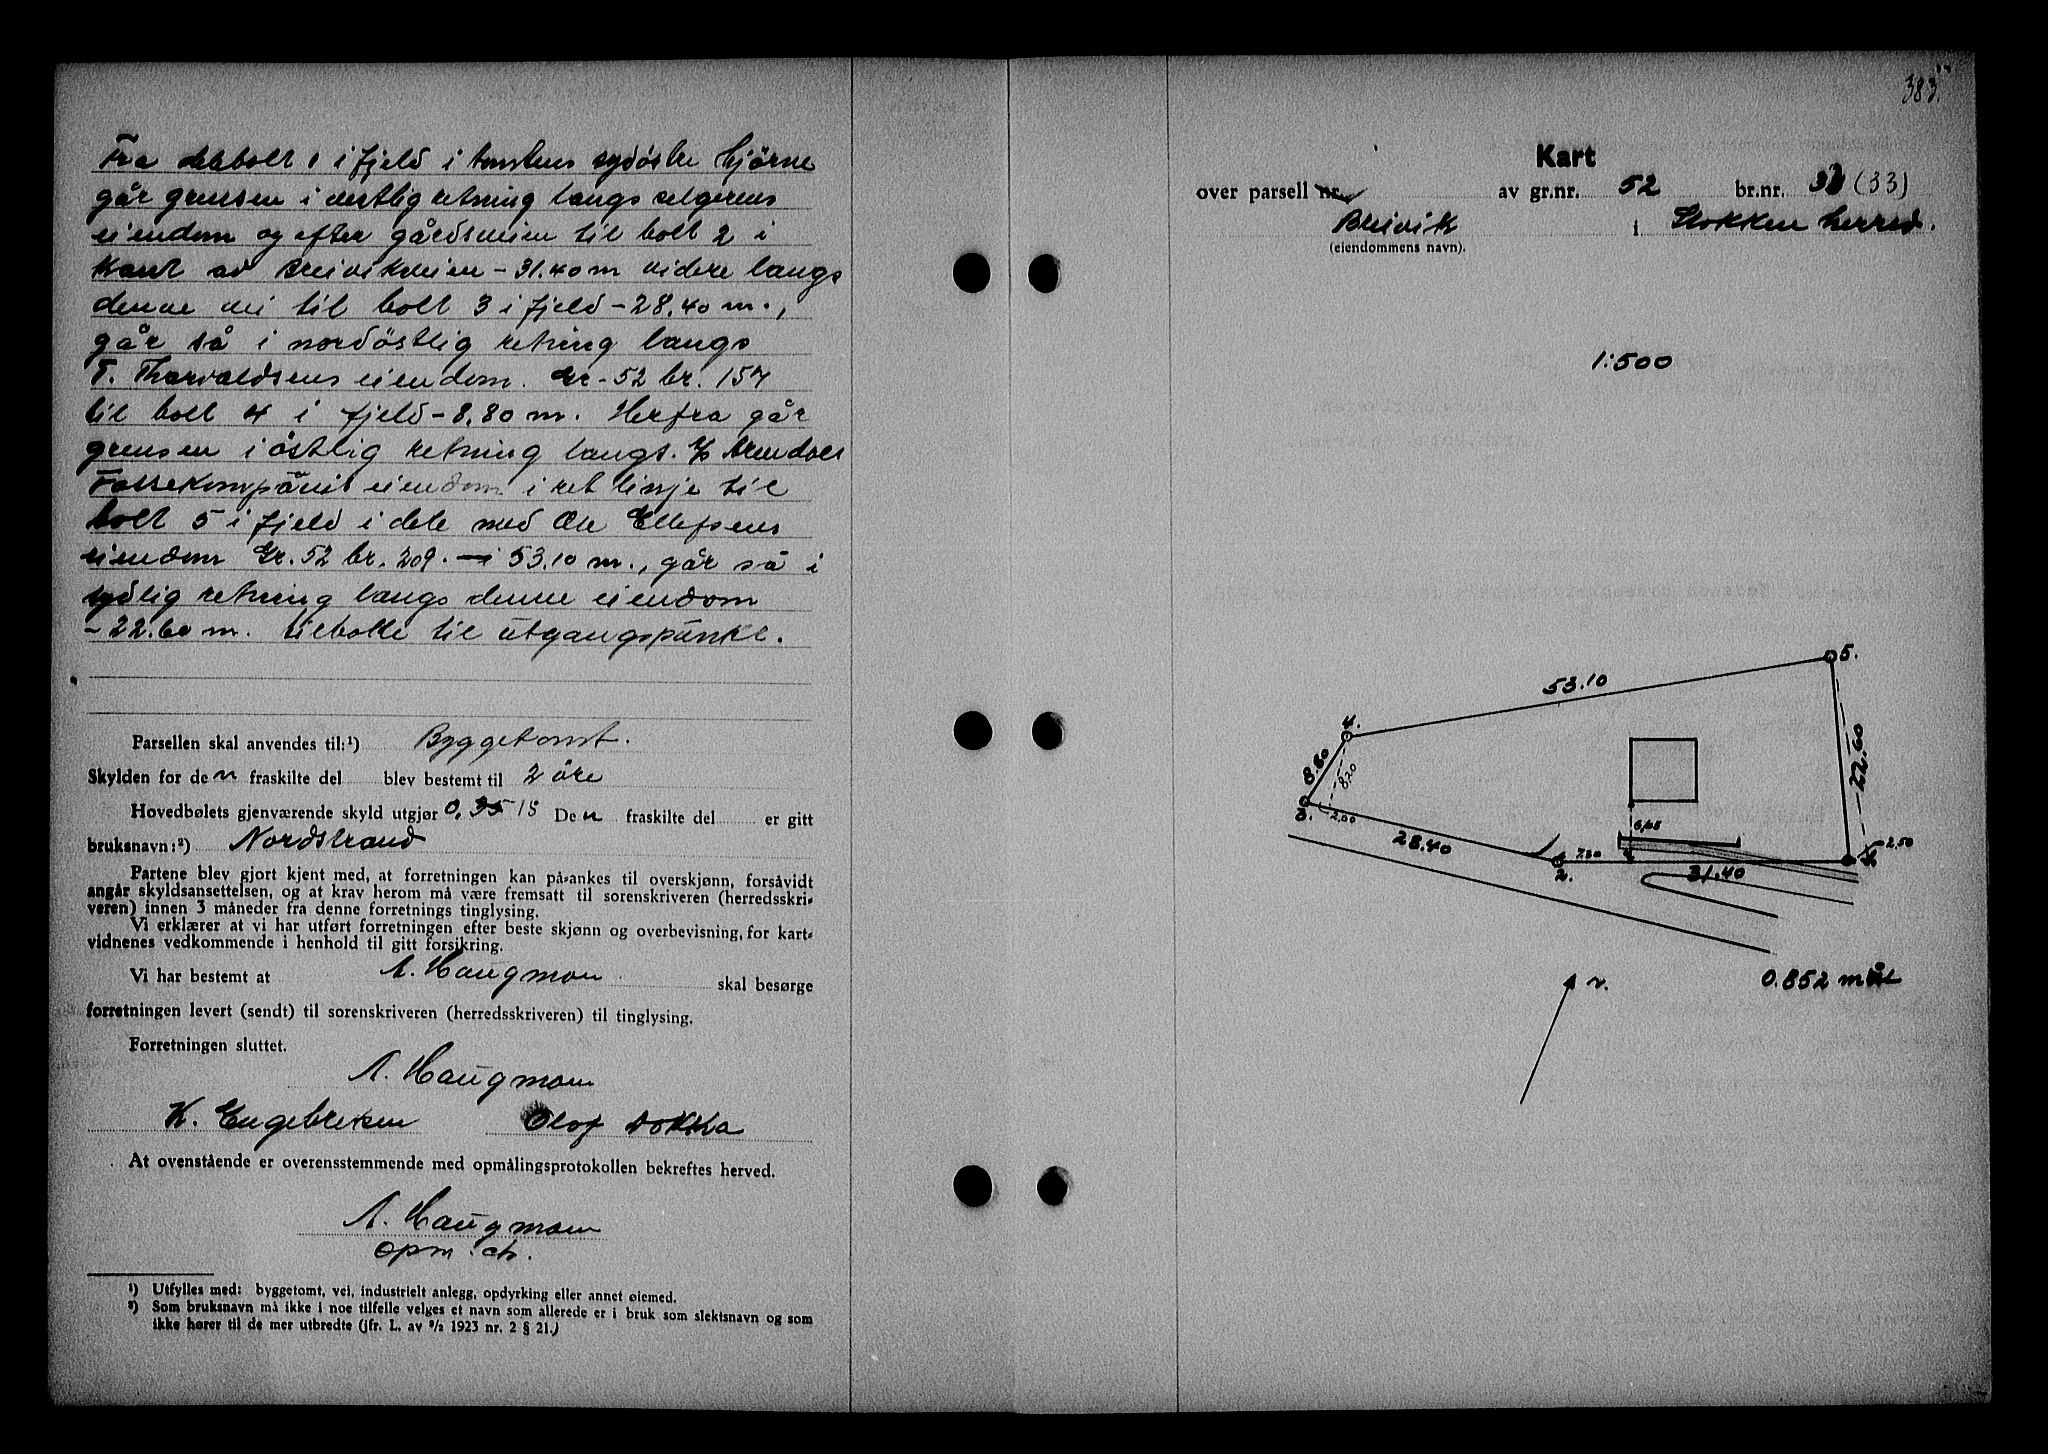 Fra delebolt 1 i fjeld i tomtens sydöstre hjörne
går grensen i vestlig retning langs selgerens
eiendom og efter gårdsveien til bolt 2 i
kant av Breivikveien - 31.40 m videre langs
denne vei til bolt 3 i fjeld - 28.40 m.,
går så i nordöstlig retning langs
T. Thorvaldsens eiendom. Gr - 52 br. 157
til bolt 4 i fjeld - 8.80 m. Herfra går
grensen i östlig retning langs. Arendals
Fossekompanis eiendom i ret linje til
bolt 5 i fjeld i dele med Ole Ellefsens
eiendom Gr. 52 br. 209. - 53.10 m., går så i
sydlig retning langs denne eiendom
- 22.60 m. tilbake til utgangspunkt.
Parsellen skal anvendes til:¹) Byggetomt.
Skylden for den fraskilte del blev bestemt til 2 öre
Hovedbølets gjenværende skyld utgjør 0.35 15 Den fraskilte del er gitt
bruksnavn:²) Nordstrand
Partene blev gjort kjent med, at forretningen kan på-ankes til overskjønn, forsåvidt
angår skyldsansettelsen, og at krav herom må være fremsatt til sorenskriveren (herredsskri-
veren) innen 3 måneder fra denne forretnings tinglysing.
Vi erklærer at vi har utført forretningen efter beste skjønn og overbevisning, for kart-
vidnenes vedkommende i henhold til gitt forsikring.
Vi har bestemt at A. Haugmoen skal besørge
forretningen levert (sendt) til sorenskriveren (herredsskriveren) til tinglysing.
Forretningen sluttet.
A. Haugmoen
K. Engebretsen Olof Dokka
At ovenstående er overensstemmende med opmålingsprotokollen bekreftes herved.
A. Haugmoen
opm. ch.
¹) Utfylles med: byggetomt, vei, industrielt anlegg, opdyrking eller annet øiemed.
²) Som bruksnavn må ikke i noe tilfelle velges et navn som allerede er i bruk som slektsnavn og som
ikke hører til de mer utbredte (jfr. L. av ⁹/₂ 1923 nr. 2 § 21.)
383
Kart
over parsell nr. av gr.nr. 52 br.nr. 33 (33)
Breivik i Stokken herred.
(eiendommens navn).
1:500
5.
53.10
4.
8.80
8,20
22.60
3.
2,00
6,65
28.40
7.20
2.
31.40
2,50
0.852 mål
N.